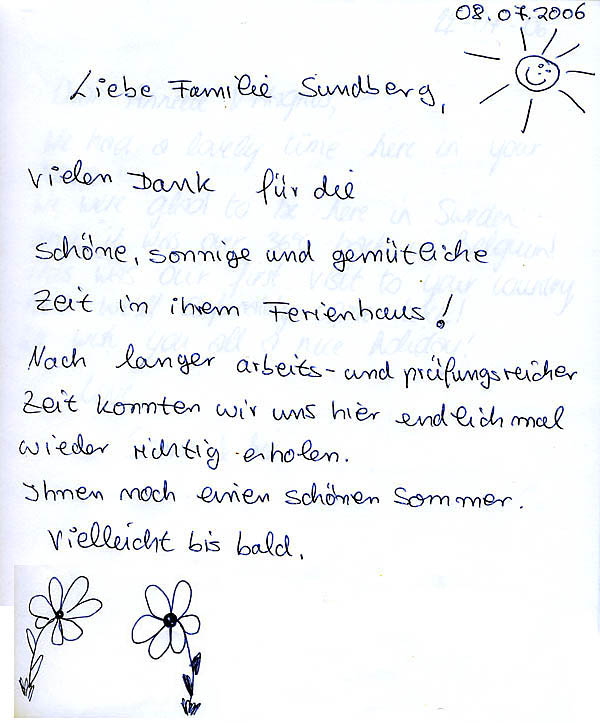 08.07.2006
Liebe Familie Sundberg,
vielen Dank für die
schöne, sonnige und gemütliche
Zeit in ihrem Ferienhaus!
Nach langer arbeits- und prüfungsreicher
Zeit konnten wir uns hier endlich mal
wieder richtig erholen.
Ihnen noch einen schönen Sommer.
Vielleicht bis bald.